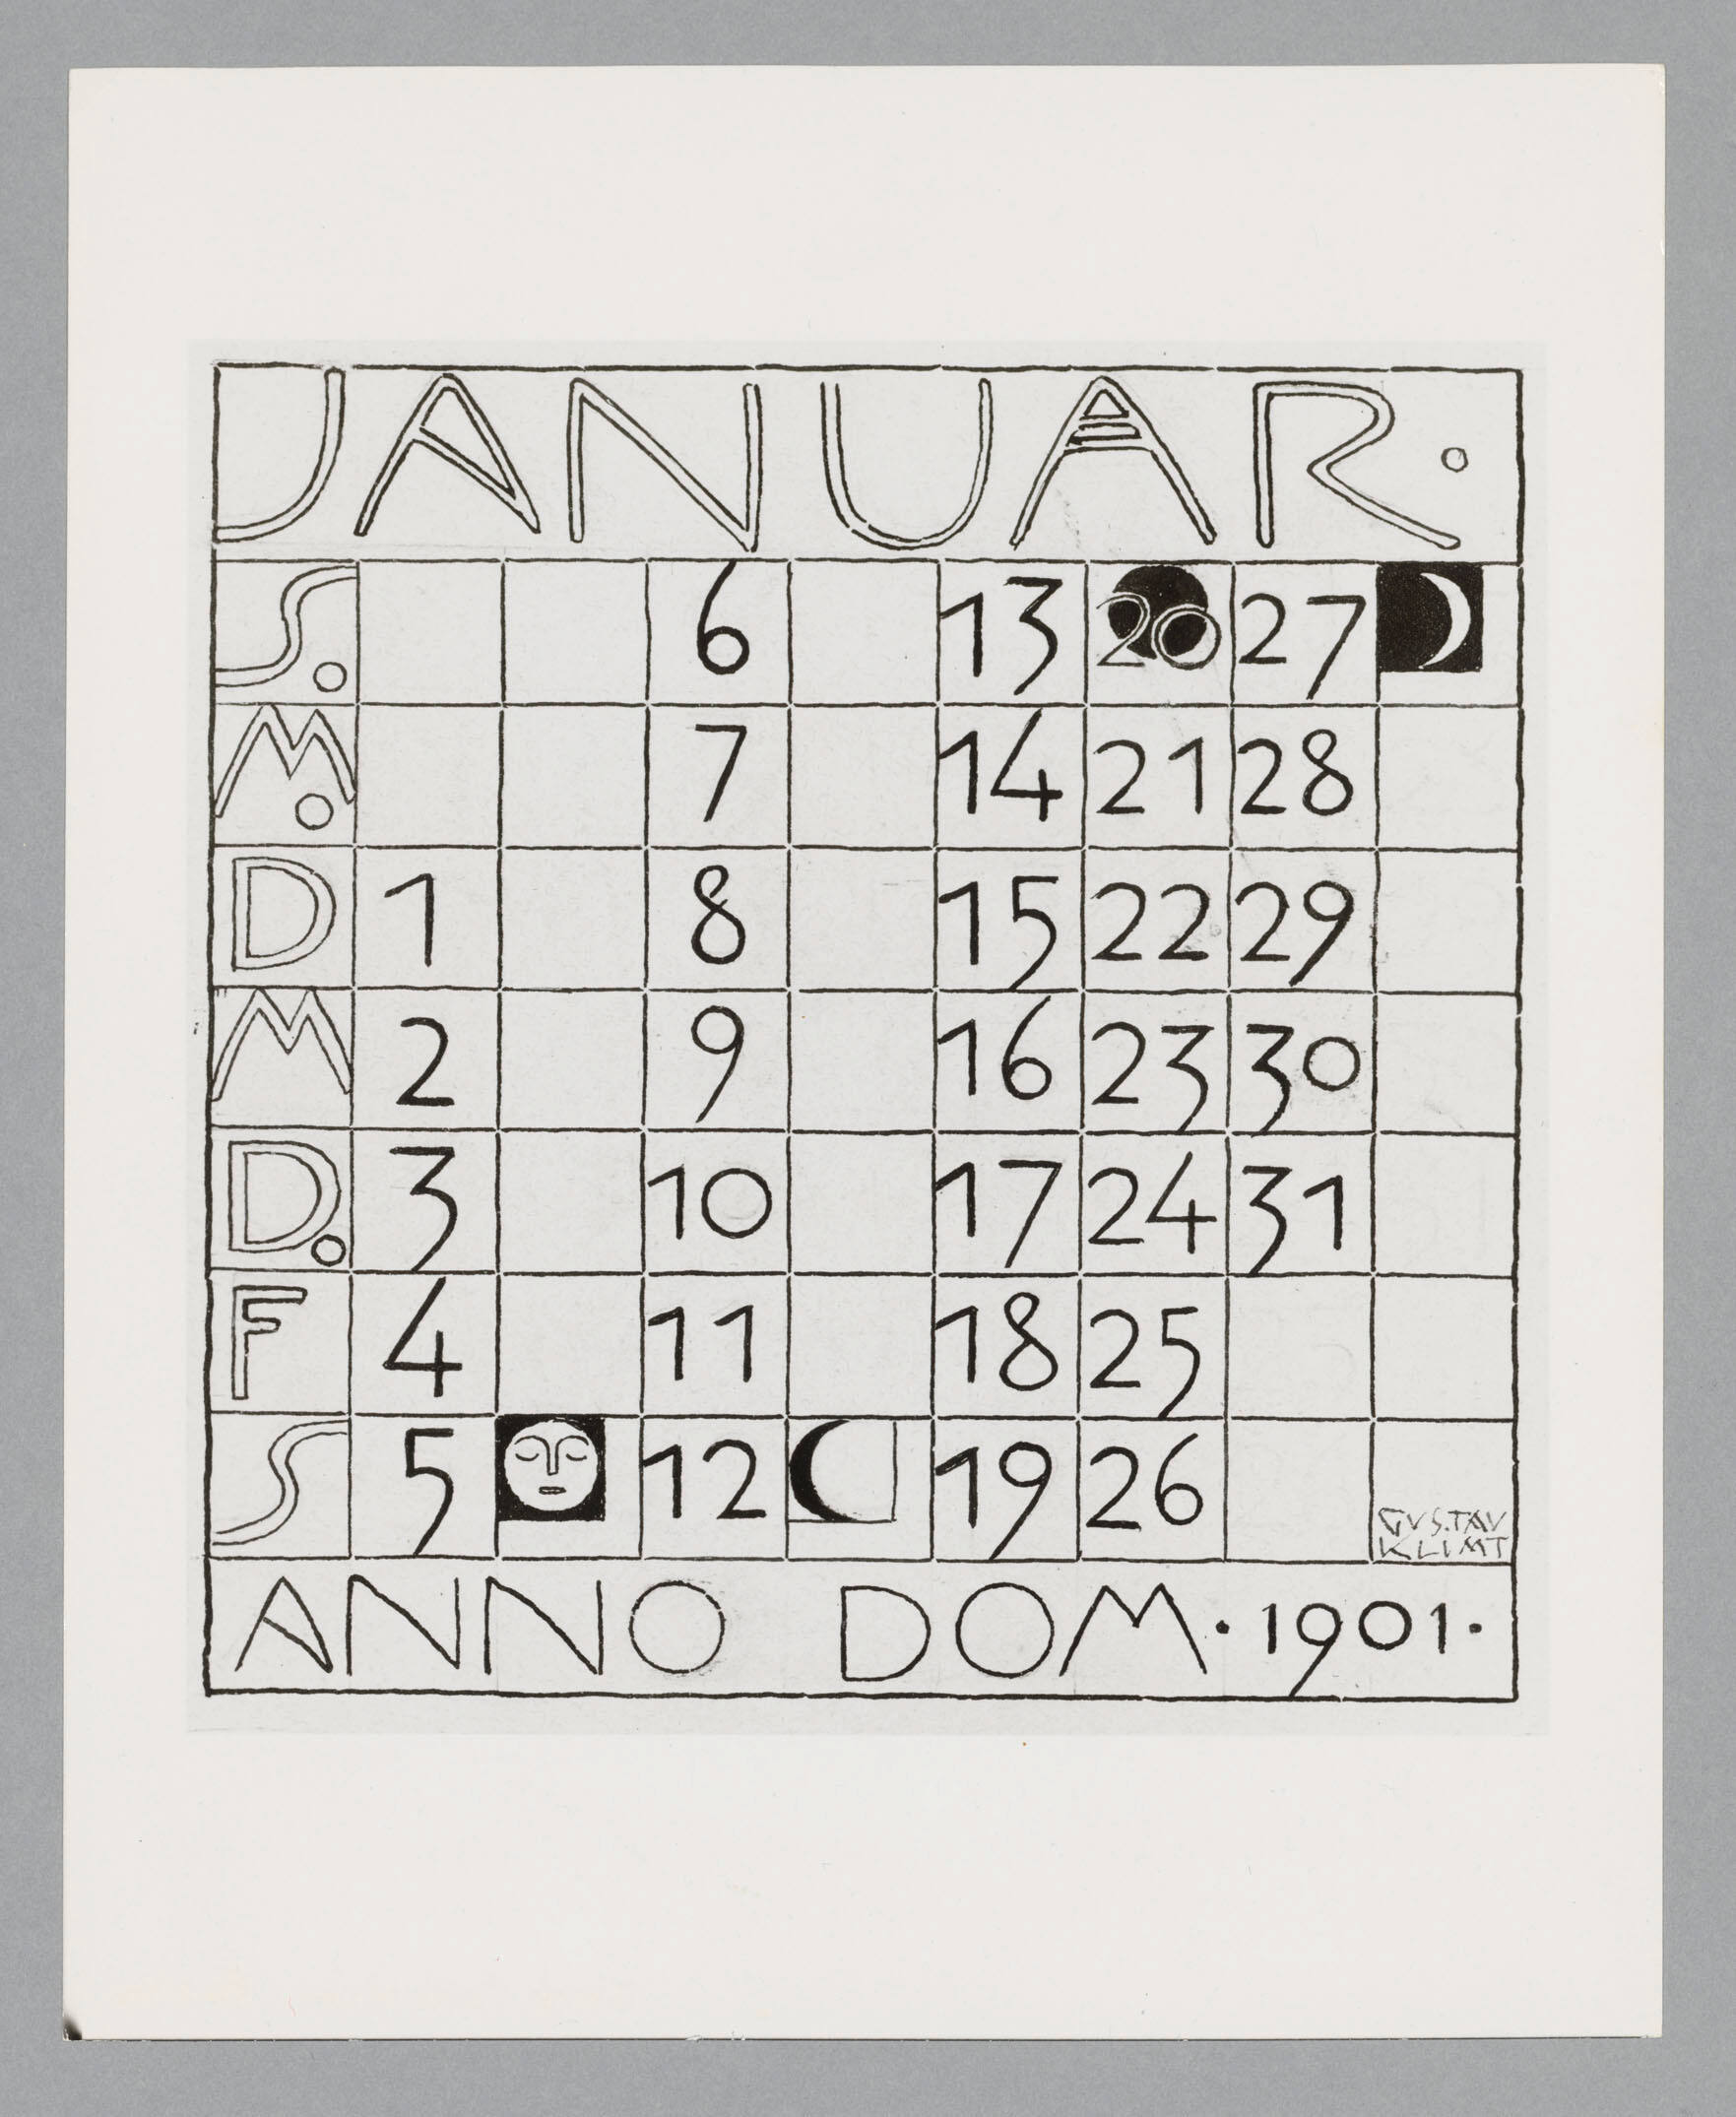 JANUAR.
S. 6 13 20 27
M. 7 14 21 28
D 1 8 15 22 29
M 2 9 16 23 30
D. 3 10 17 24 31
F 4 11 18 25
S 5 12 19 26
GVSTAV
KLIMT
ANNO DOM·1901·